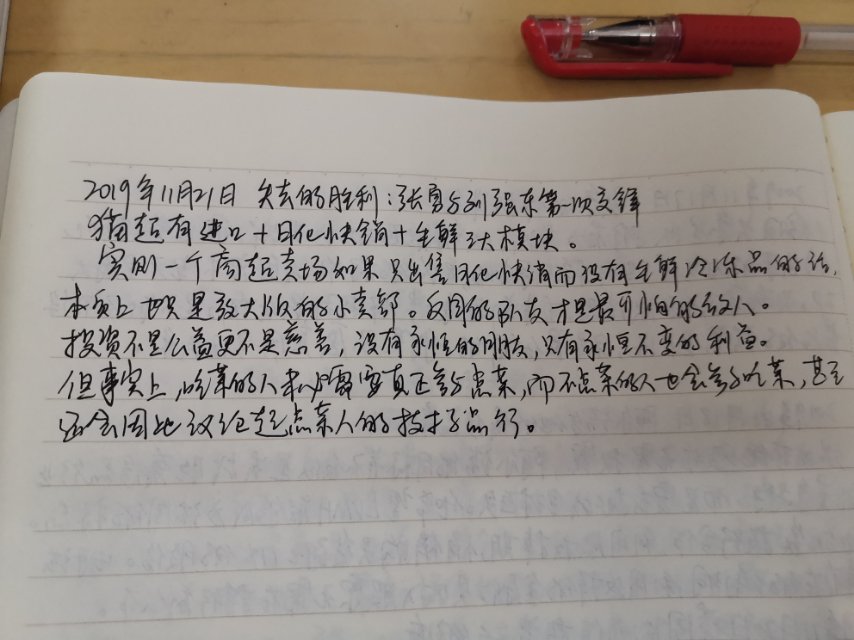 2019年11月21日 失去的胜利:张勇与刘强东第一次交锋
猫超有进口+日化快销+生鲜3大模块。
实则一个商超卖场如果只出售日化快消而没有生鲜冷冻品的话,
本质上也只是放大版的小卖部。反目的队友才是最可怕的敌人。
投资不是公益更不是慈善,没有永恒的朋友,只有永恒不变的利益。
但事实上,吃菜的人未必需要真正参与点菜,而不点菜的人也会参与吃菜,甚至
还会因此议论起点菜人的技术与品行。